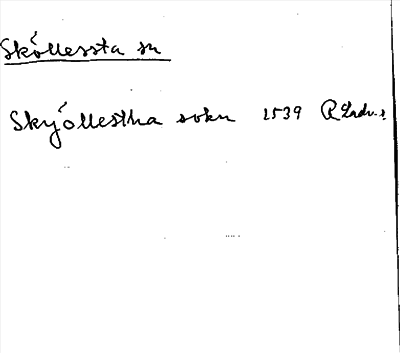 Sköllessta sn
Skyöllestha sokn 1539 R